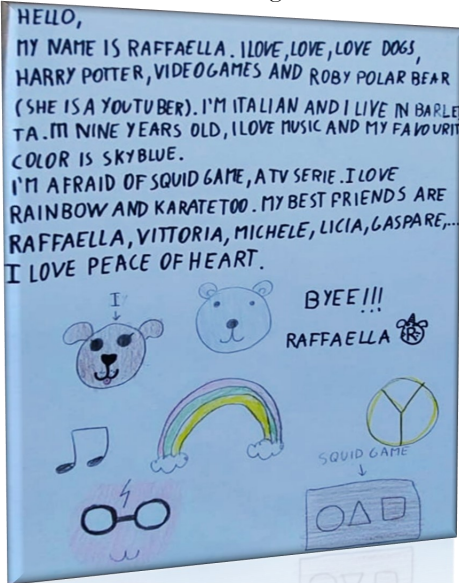 HELLO,
MY NAME IS RAFFAELLA. I LOVE, LOVE, LOVE DOGS,
HARRY POTTER, VIDEOGAMES AND ROBY POLAR BEAR
(SHE IS A YOUTUBER). I'M ITALIAN AND I LIVE IN BARLE
TA. I'M NINE YEARS OLD, I LOVE MUSIC AND MY FAVOURIT
COLOR IS SKYBLUE.
I'M AFRAID OF SQUID GAME, A TV SERIE. I LOVE
RAINBOW AND KARATE TOO. MY BEST FRIENDS ARE
RAFFAELLA, VITTORIA, MICHELE, LICIA, GASPARE,...
I LOVE PEACE OF HEART.
I
BYEE!!!
RAFFAELLA R
SQUID GAME